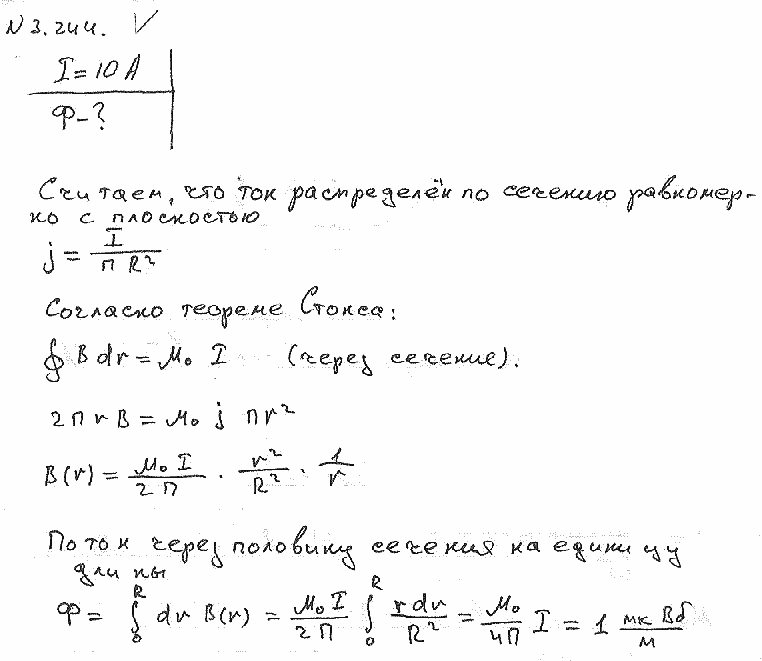 N 3.244. √
I = 10 A
Ф - ?
Считаем, что ток распределён по сечению равномер-
но с плоскостью
j = I / (π R²)
Согласно теореме Стокса:
∮ B dr = μ₀ I (через сечение).
2π r B = μ₀ j π r²
B(r) = μ₀ I / 2π · r² / R² · 1 / r
Поток через половину сечения на единицу
длины
Ф = ∫₀ᴿ dr B(r) = μ₀ I / 2π ∫₀ᴿ r dr / R² = μ₀ / 4π I = 1 мк Вб / м